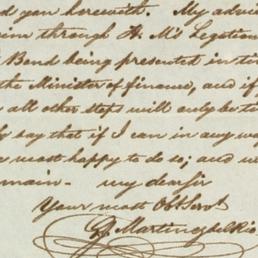 d you herewith. My advi
im through H. M's Legation
Bond being presented in ti
the Minister of finance, and if
all other steps will only be to
ly say that if I can in any way
most happy to do so; and
main - my dear Sir
Your most Obt Servt
Martinez del Rio